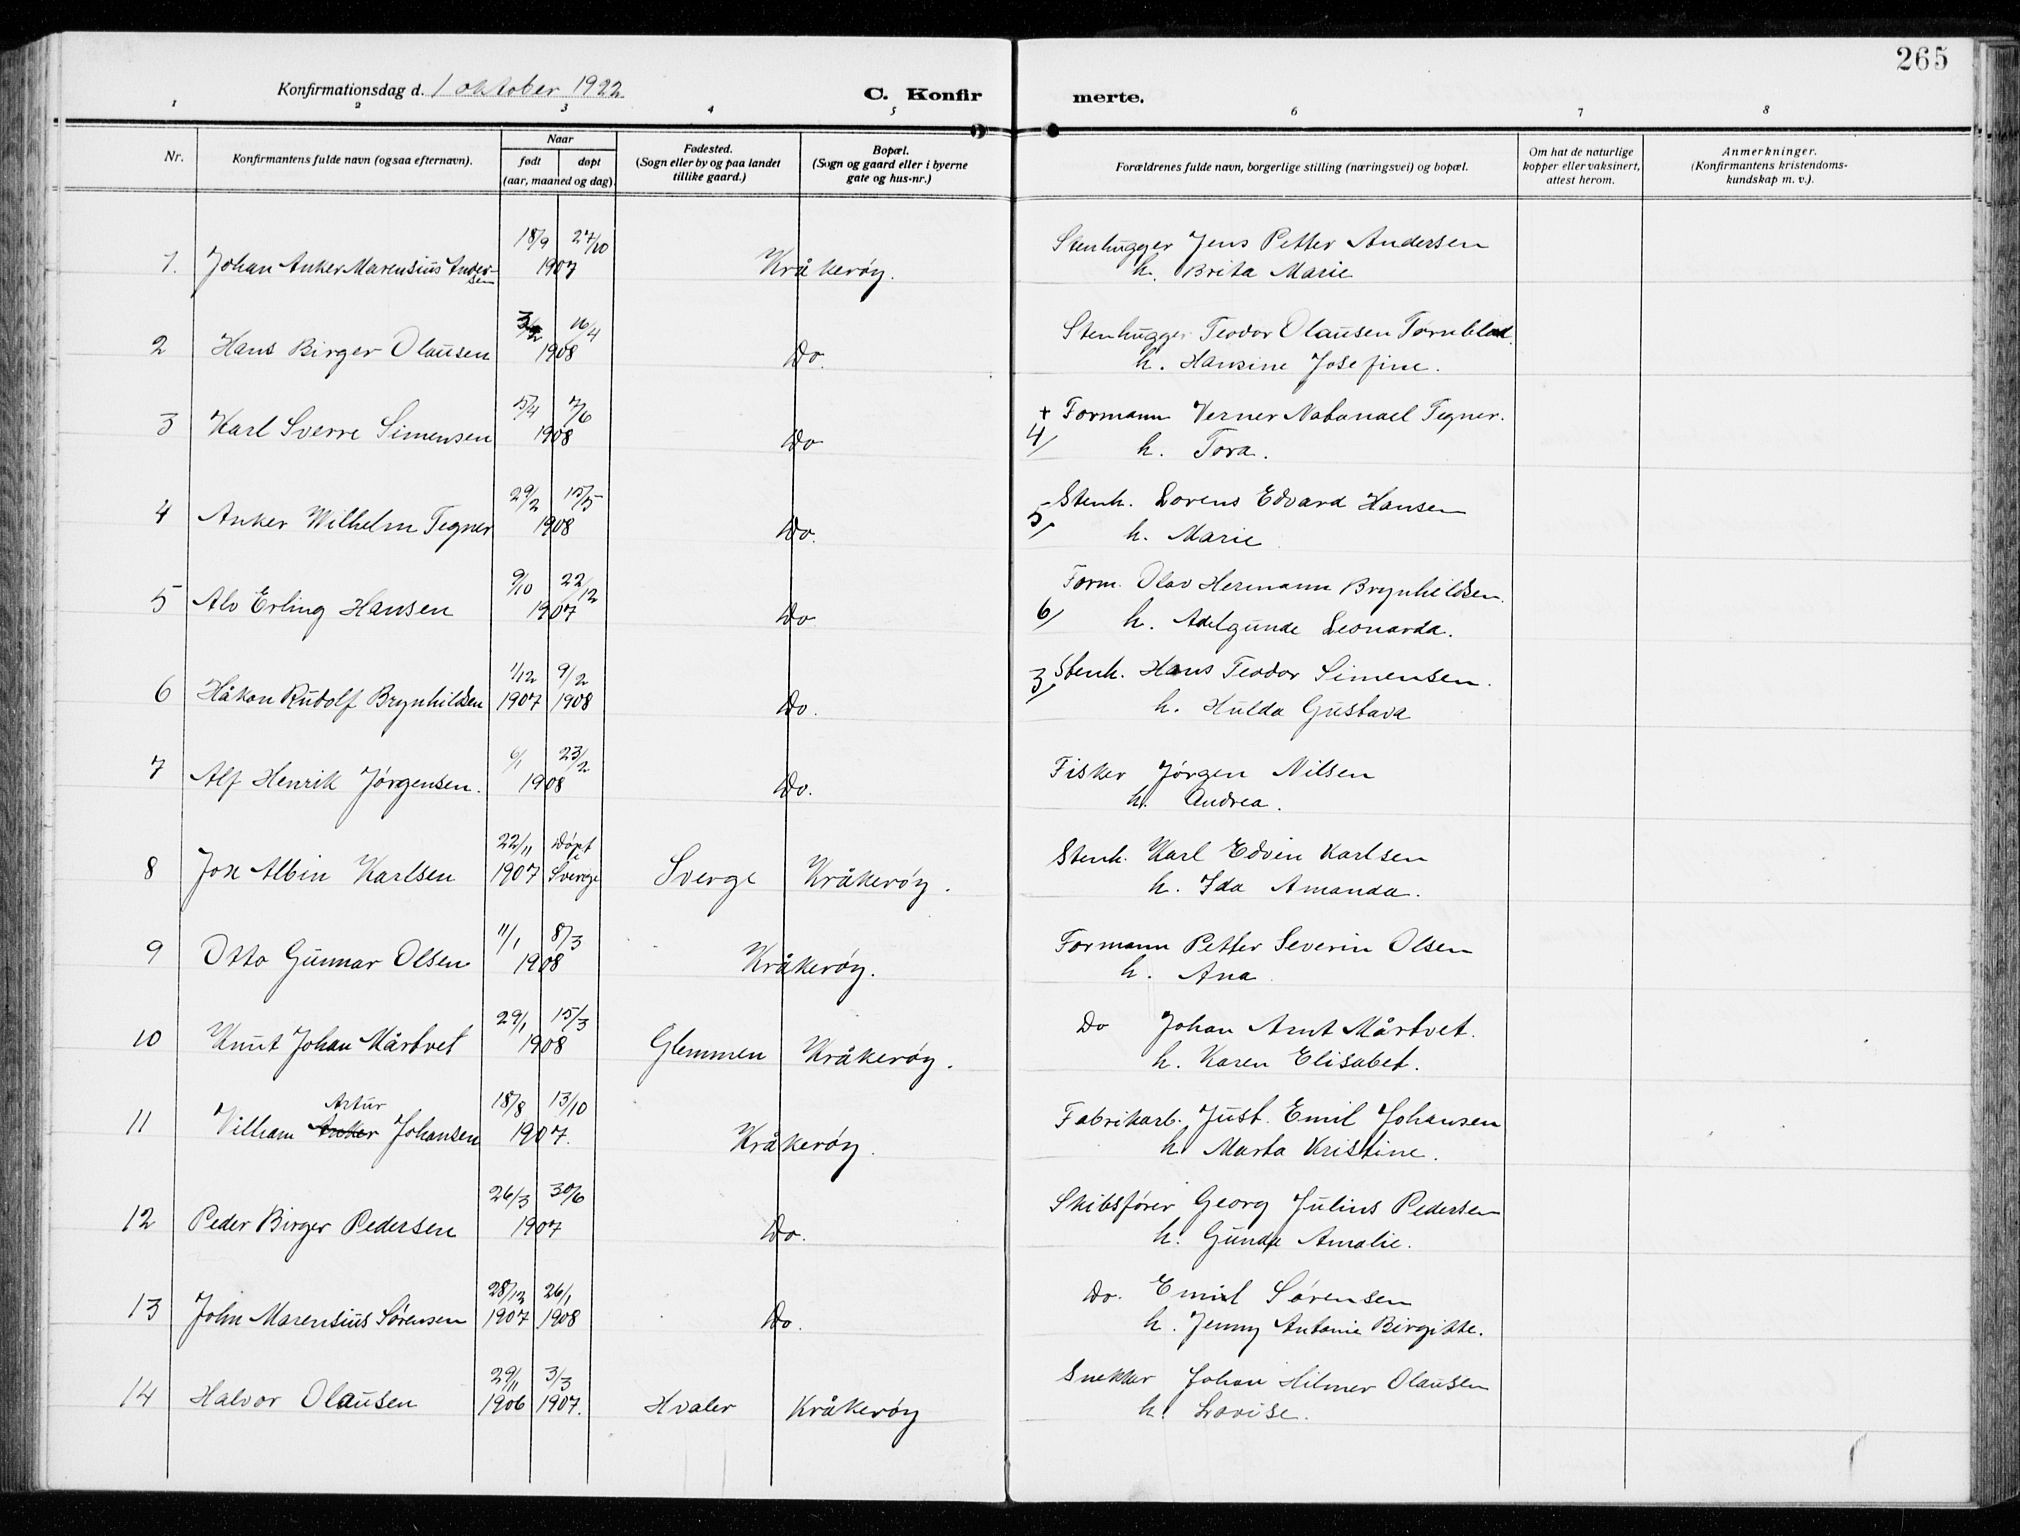 265
Konfirmationsdag d. 1 oktober 1922
C. Konfir merte.
1 2 3 4 5 6 7 8
Nr.
Konfirmantens fulde navn (ogsaa efternavn).
Naar
født døpt
(aar, maaned og dag).
Fødested.
(Sogn eller by og paa landet
tillike gaard.)
Bopæl.
(Sogn og gaard eller i byerne
gate og hus-nr.)
Forældrenes fulde navn, borgerlige stilling (næringsvei) og bopæl.
Om hat de naturlige
kopper eller vaksinert,
attest herom.
Anmerkninger.
(Konfirmantens kristendoms-
kundskap m. v.).
18/9 27/10 Stenhugger Jens Petter Andersen
1. Johan Anker Marensius Ander-
sen 1907 Kråkerøy. h. Brita Marie
3/2 16/4 Stenhugger Teodor Olausen Törnblad.
2 Hans Birger Olausen 1908 Do. h. Hansine Josefine.
5/4 7/6 + Formann Verner Natanael Tegner.
3 Karl Sverre Simensen 1908 Do 4/ h. Tora.
29/2 15/5 Stenh. Lorens Edvard Hansen
4 Anker Wilhelm Tegner 1908 Do. 5/ h. Marie
9/10 22/12 Form. Olav Hermann Brynhildsen.
5 Alv Erling Hansen 1907 Do 6/ h. Adelgunde Leonarda.
1/12 9/2 3/ Stenh. Hans Teodor Simensen.
6 Håkon Rudolf Brynhildsen 1907 1908 Do. h. Hulda Gustava
6/1 23/2 Fisker Jørgen Nilsen
7 Alf Henrik Jørgensen. 1908 Do. h. Andrea.
22/11 Døpt i Stenh. Karl Edvin Karlsen
8 Jon Albin Karlsen 1907 Sverge Sverge Kråkerøy. h. Ida Amanda.
11/1 8/3 Formann Petter Severin Olsen
9 Otto Gunnar Olsen 1908 Kråkerøy. h. Ana.
29/1 15/3 Do Johan Arnt Mårtvet.
10 Knut Johan Mårtvet 1908 Glemmen Kråkerøy. h. Karen Elisabet.
Artur 18/8 13/10 Fabrikarb. Just. Emil Johansen
11 Villiam Anker Johansen 1907. Kråkerøy. h. Marta Kristine.
26/3 30/6 Skibsfører Georg Julius Pedersen
12 Peder Birger Pedersen 1907 Do. h. Gunda Amalie.
28/12 26/1 Do. Emil Sørensen
13 John Marensius Sørensen 1907 1908 Do. h. Jenny Antonie Birgitte.
29/11 3/3 Snekker Johan Hilmer Olausen
14 Halvor Olausen 1906 1907. Hvaler Kråkerøy h. Lovise.